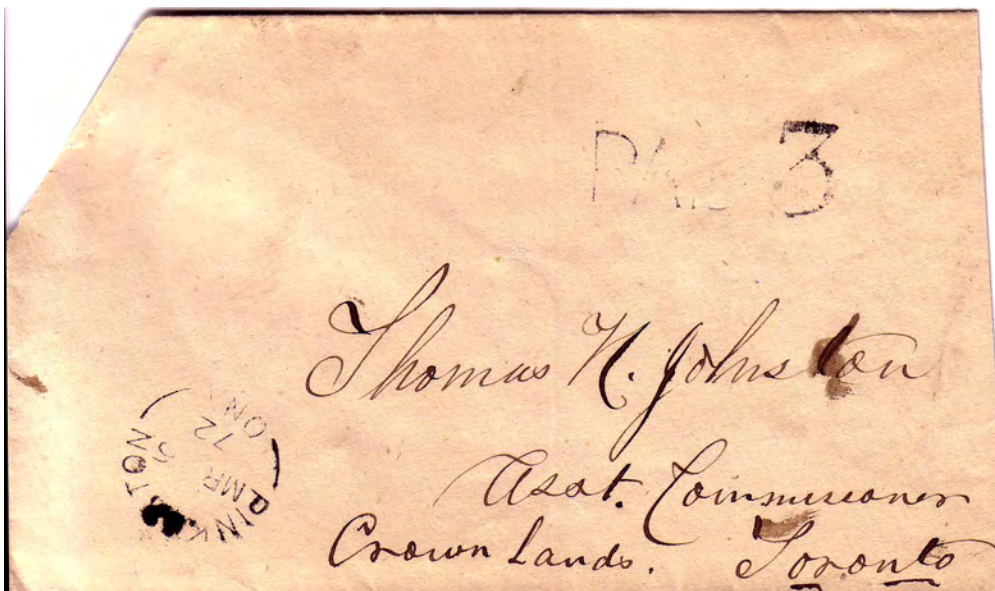 PAID 3
Thomas H. Johnston
Asst. Commissioner
Crown Lands. Toronto
PINKERTON
MR
72
ONT